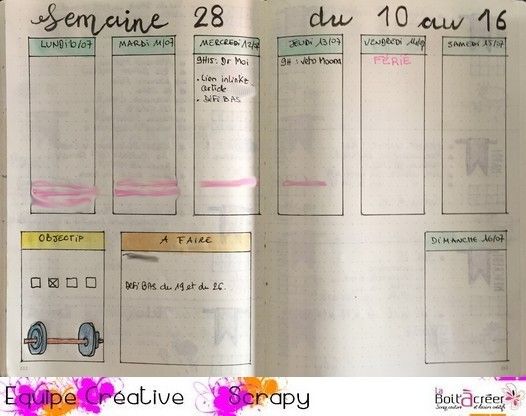 Semaine 28 du 10 au 16
LUNDI 10/07
MARDI 11/07
MERCREDI 12/07
JEUDI 13/07
VENDREDI 14/07
SAMEDI 15/07
9H15: Dr Moi
. Lien inlinkz
article
. DÉFI BAS
9H: Véto Moona
FÉRIÉ
OBJECTIF
A FAIRE
DÉFI BAS du 19 et du 26.
DIMANCHE 16/07
Equipe Créative Scrapy
La
Boit à créer